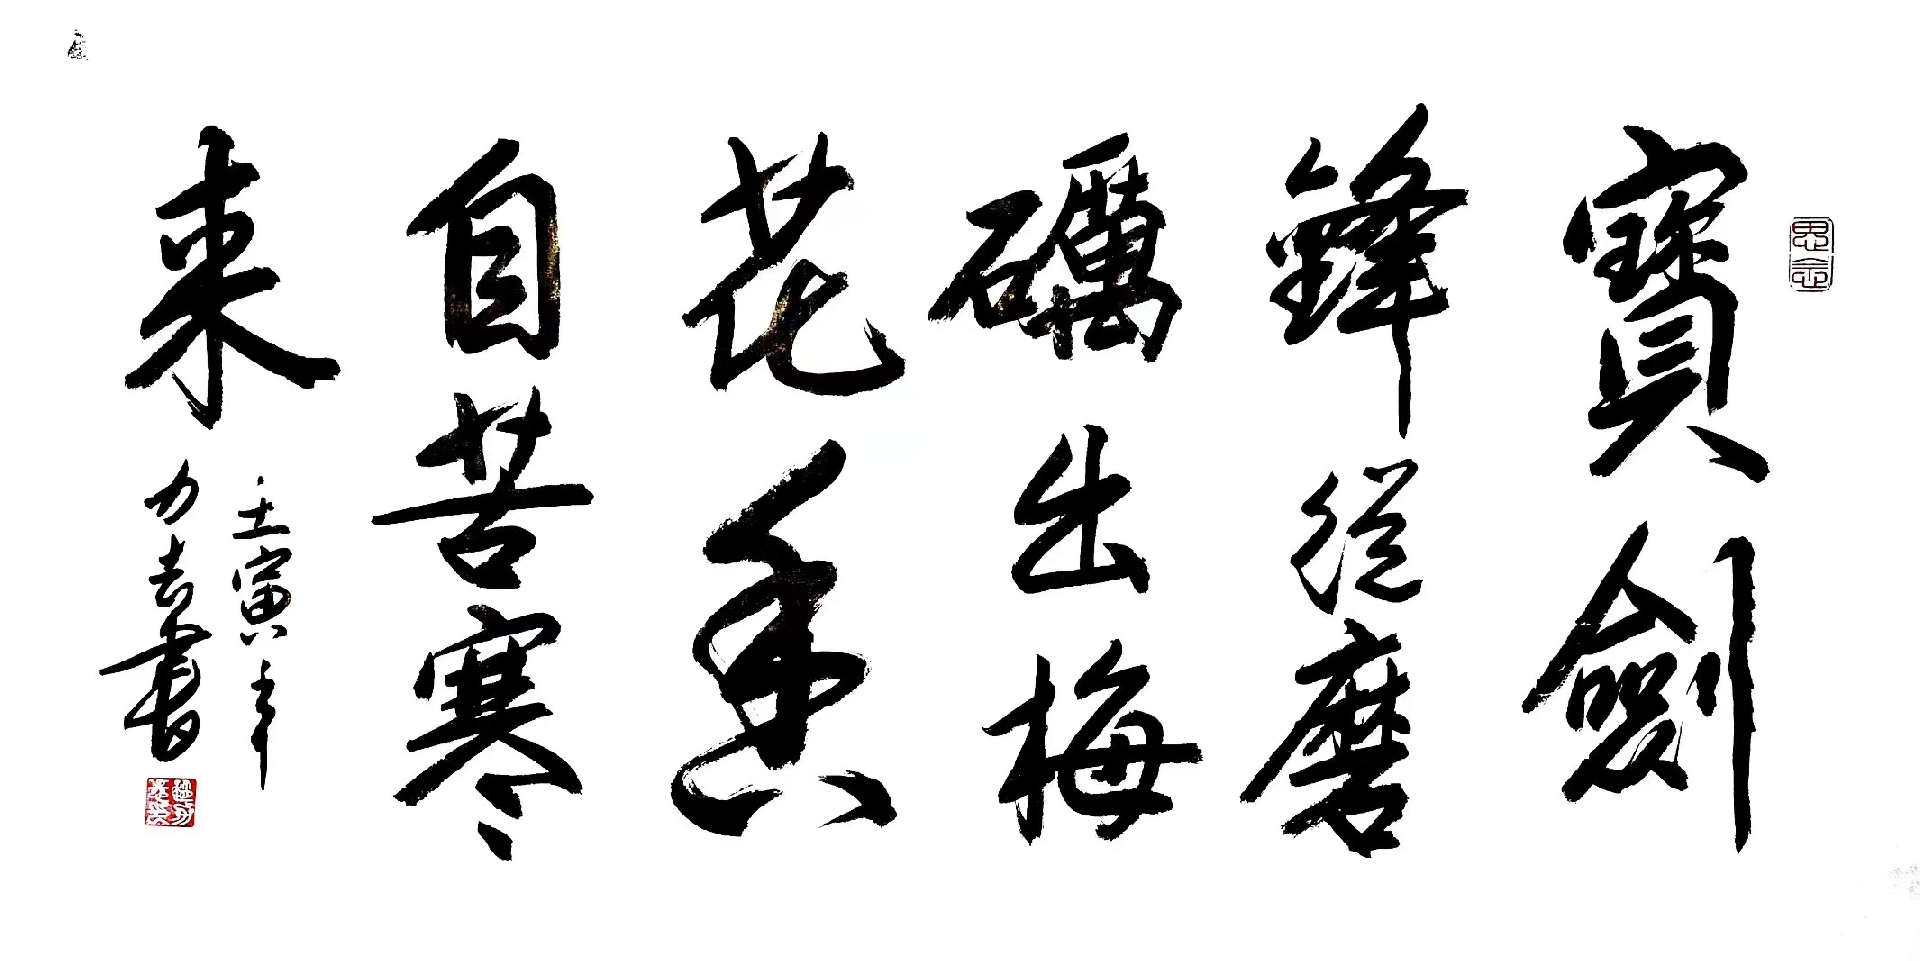 寶劍
鋒從磨
礪出梅
花香
自苦寒
来
壬寅年
力
書